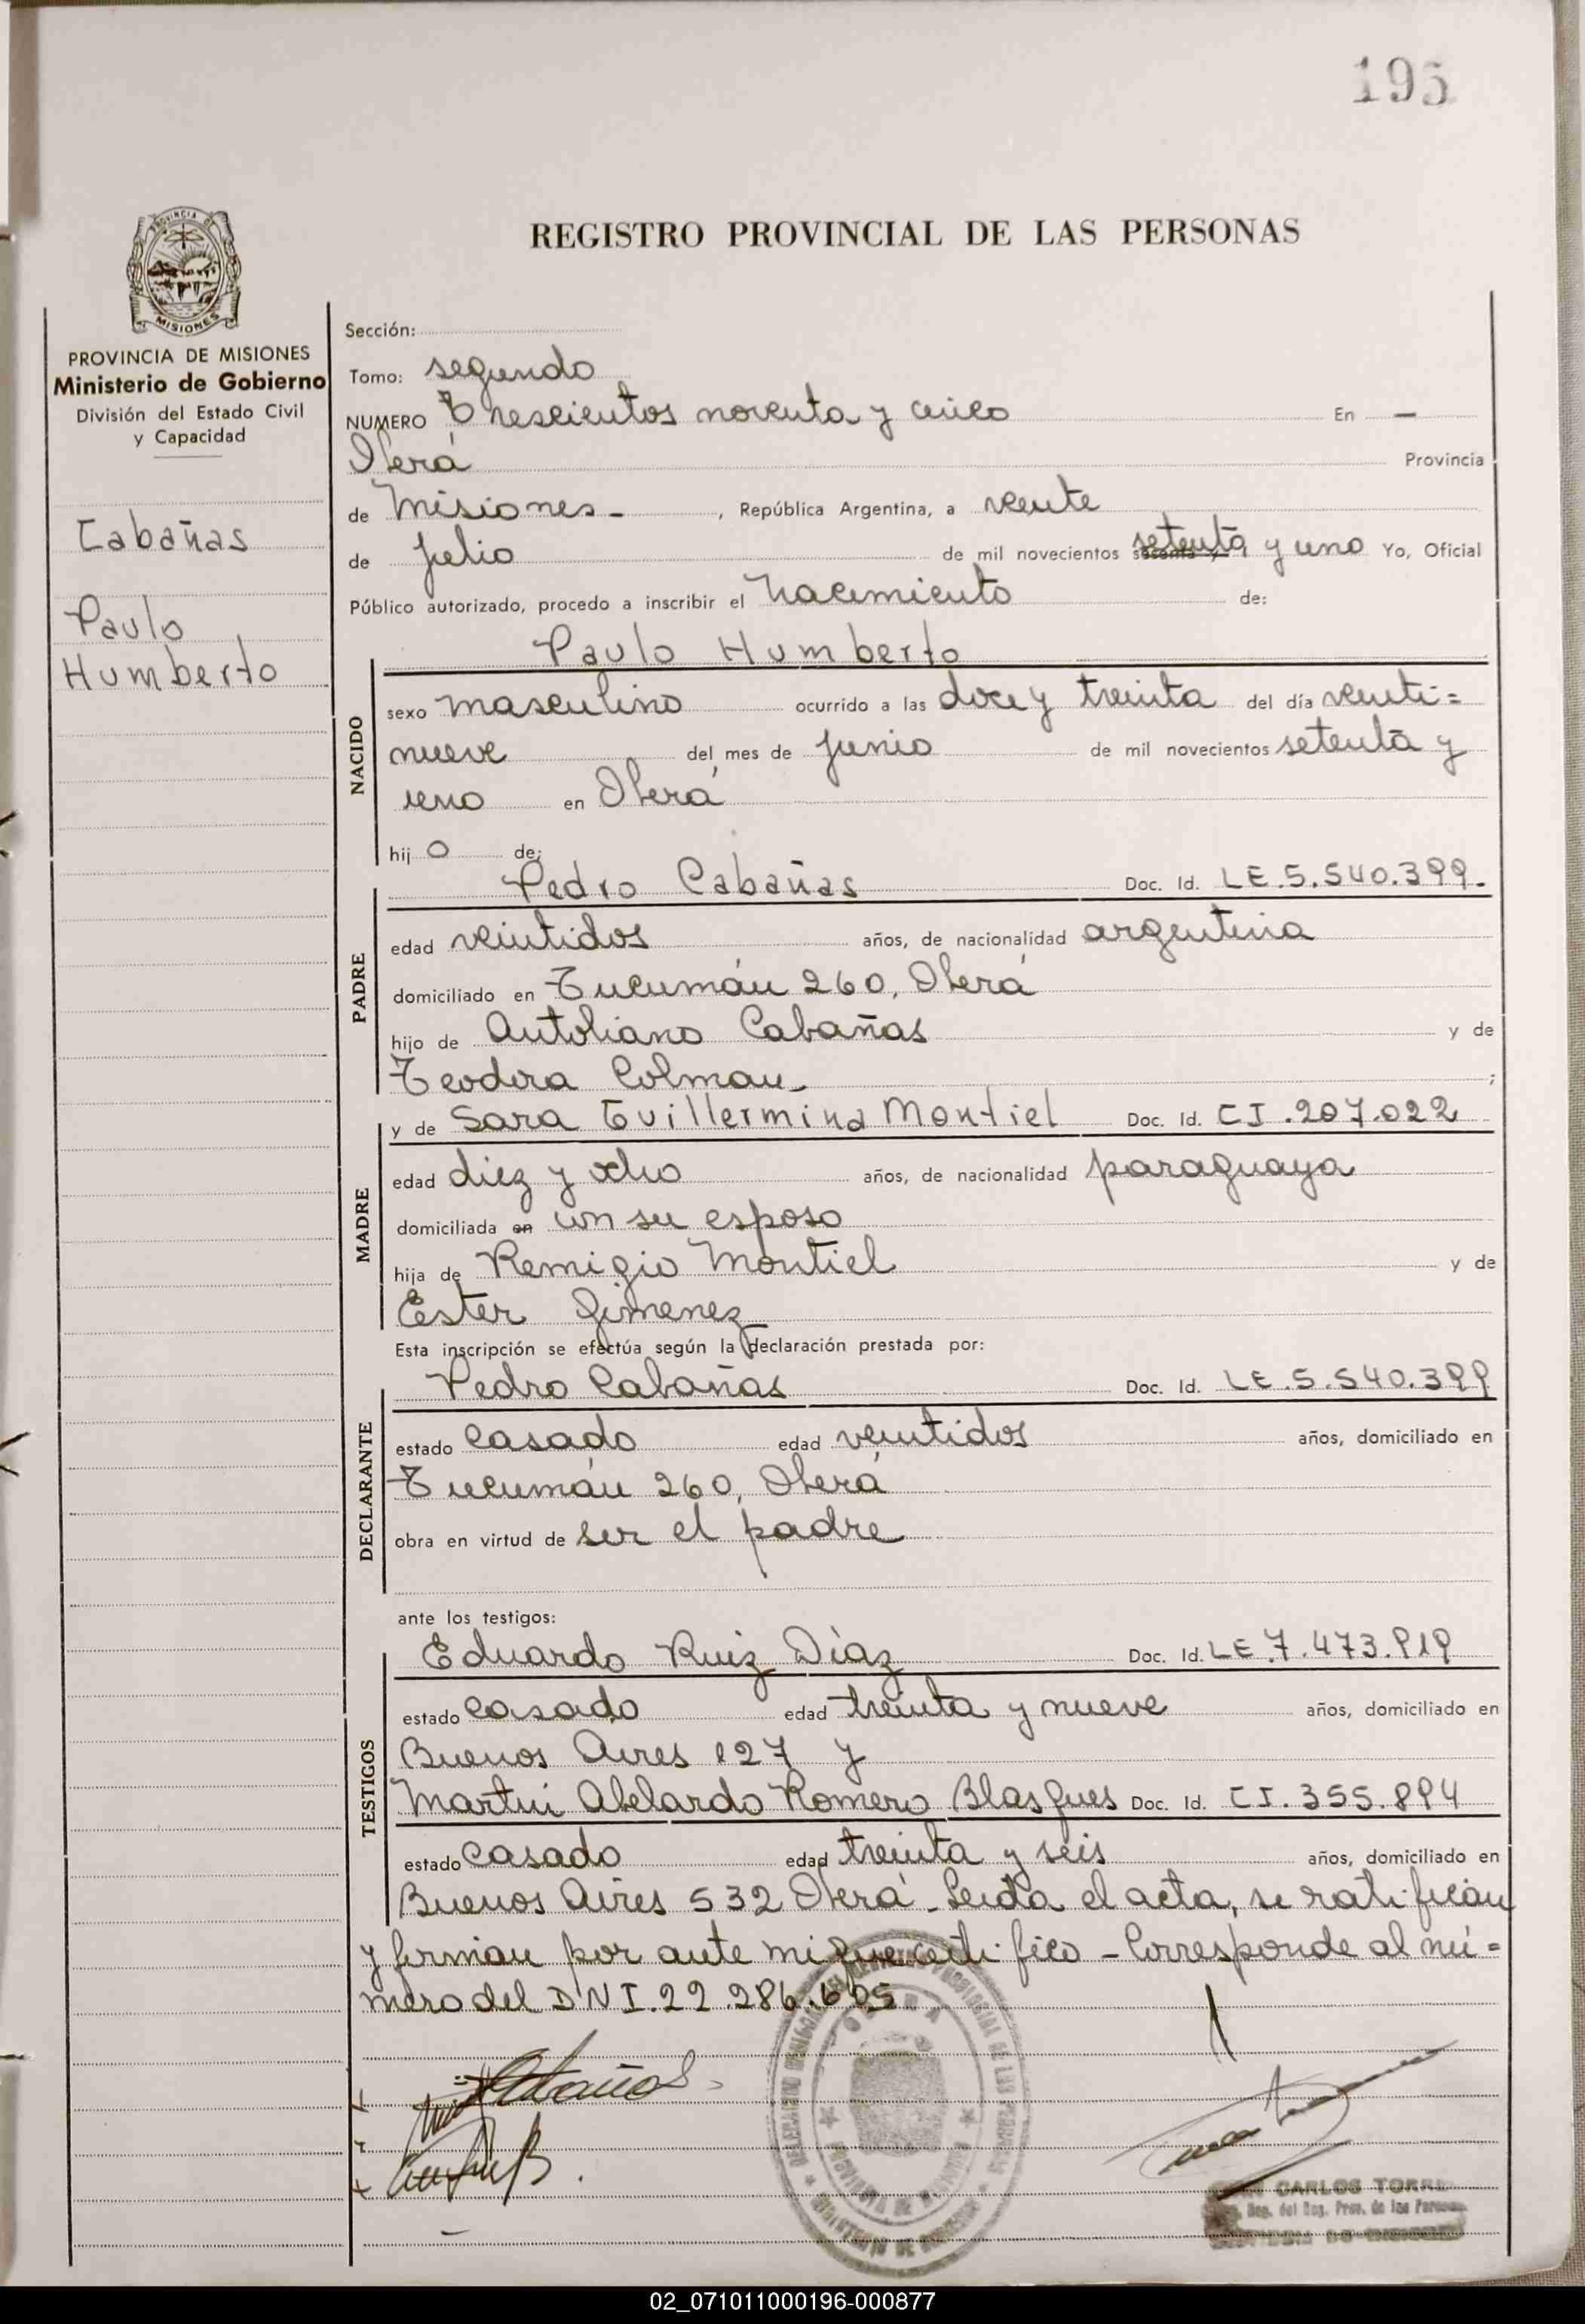 195
REGISTRO PROVINCIAL DE LAS PERSONAS
MISIONES
PROVINCIA DE MISIONES
Ministerio de Gobierno
División del Estado Civil
y Capacidad
Cabañas
Paulo
Humberto
Sección:
Tomo: segundo
NUMERO Trescientos noventa y cinco En —
Oberá Provincia
de Misiones- , República Argentina, a veinte
de julio de mil novecientos setenta y uno Yo, Oficial
Público autorizado, procedo a inscribir el nacimiento de:
Paulo Humberto
NACIDO
sexo masculino ocurrido a las doce y treinta del día veinti=
nueve del mes de junio de mil novecientos setenta y
uno en Oberá
hij o de:
PADRE
Pedro Cabañas Doc. Id. LE.5.540.399.-
edad veintidos años, de nacionalidad argentina
domiciliado en Tucumán 260, Oberá
hijo de Antoliano Cabañas y de
Teodora Colman- ;
MADRE
y de Sara Guillermina Montiel Doc. Id. CI.207.022
edad diez y ocho años, de nacionalidad paraguaya
domiciliada en con su esposo
hija de Remigio Montiel y de
Ester Gimenez
Esta inscripción se efectúa según la declaración prestada por:
DECLARANTE
Pedro Cabañas Doc. Id. LE.5.540.399
estado casado edad veintidos años, domiciliado en
Tucumán 260, Oberá
obra en virtud de ser el padre
ante los testigos:
TESTIGOS
Eduardo Ruiz Díaz Doc. Id. LE.7.473.919
estado casado edad treinta y nueve años, domiciliado en
Buenos Aires 127 y
Martin Abelardo Romero Blasques Doc. Id. CI.355.894
estado casado edad treinta y seis años, domiciliado en
Buenos Aires 532 Oberá - Leida el acta, se ratifican
y firman por ante mi que certifico - Corresponde al nú=
mero del DNI.22.286.605
Cabañas
CARLOS TORRE
Reg. del Reg. Prov. de las Personas
02_071011000196-000877